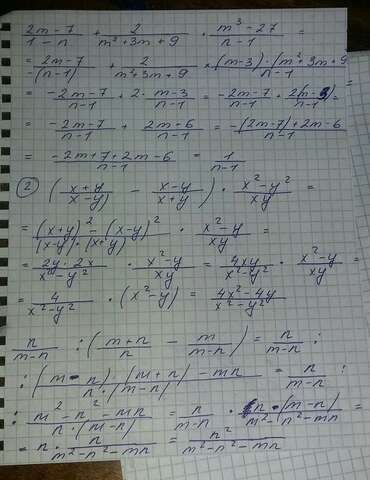 (2m-7)/(1-n) + 2/(m²+3m+9) · (m³-27)/(n-1) =
= (2m-7)/(-(n-1)) + 2/(m²+3m+9) × (m-3)·(m²+3m+9)/(n-1) =
= -(2m-7)/(n-1) + 2·(m-3)/(n-1) = -(2m-7)/(n-1) · 2(m-3)/(n-1) =
= -(2m-7)/(n-1) + (2m+6)/(n-1) = (-(2m-7)+2m-6)/(n-1)
= (-2m+7+2m-6)/(n-1) = 1/(n-1)
② ((x+y)/(x-y) - (x-y)/(x+y)) · (x²-y²)/(xy) =
= ((x+y)²-(x-y)²)/((x-y)·(x+y)) · (x²-y)/(xy) =
= (2y·2x)/(x²-y²) · (x²-y)/(xy) = (4xy)/(x²-y²) · (x²-y)/(xy) =
= 4/(x²-y²) · (x²-y) = (4x²-4y)/(x²-y²)
n/(m-n) : ((m+n)/n - m/(m-n)) = n/(m-n) :
: ((m-n)·(m+n)-mn)/(n·(m-n)) = n/(m-n) :
: (m²-n²-mn)/(n·(m-n)) = n/(m-n) · (n·(m-n))/(m²-n²-mn) =
= n · n/(m²-n²-mn) = n²/(m²-n²-mn)